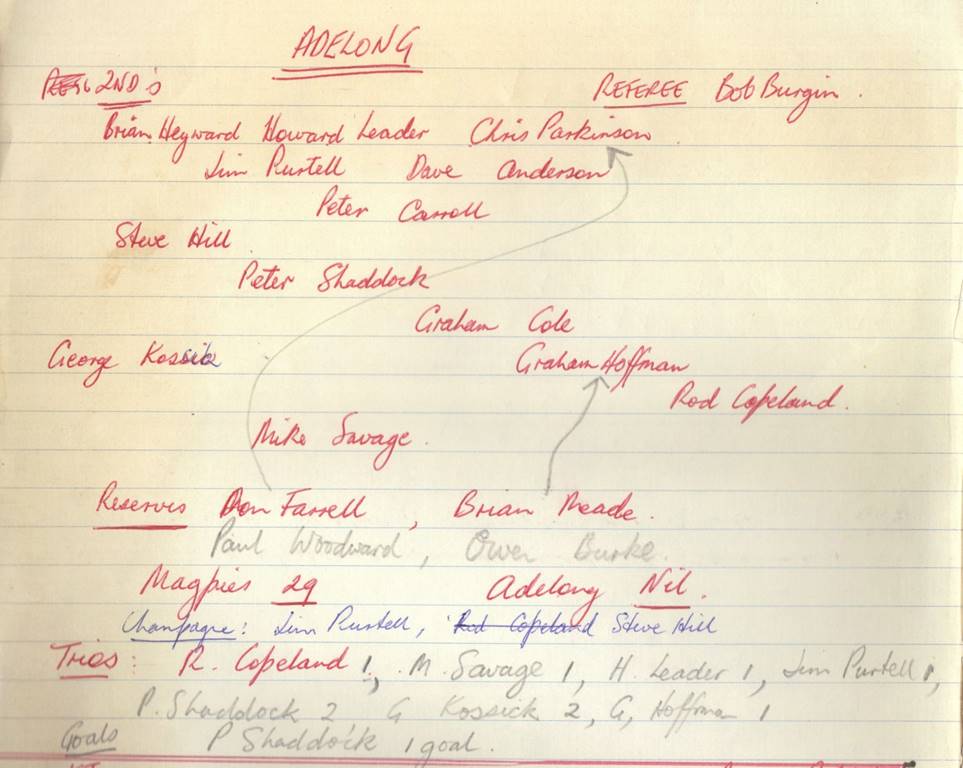 ADELONG
2ND's REFEREE Bob Burgin.
Brian Heyward Howard Leader Chris Parkinson
Jim Purtell Dave Anderson
Peter Carroll
Steve Hill
Peter Shaddock
Graham Cole
George Kossick Graham Hoffman
Rod Copeland.
Mike Savage.
Reserves Don Farrell, Brian Meade.
Paul Woodward, Owen Burke.
Magpies 29 Adelong Nil.
Champagne: Jim Purtell, Rod Copeland Steve Hill
Tries: R. Copeland 1, M. Savage 1, H. Leader 1, Jim Purtell 1,
P. Shaddock 2, G Kossick 2, G, Hoffman 1
Goals P Shaddock 1 goal.